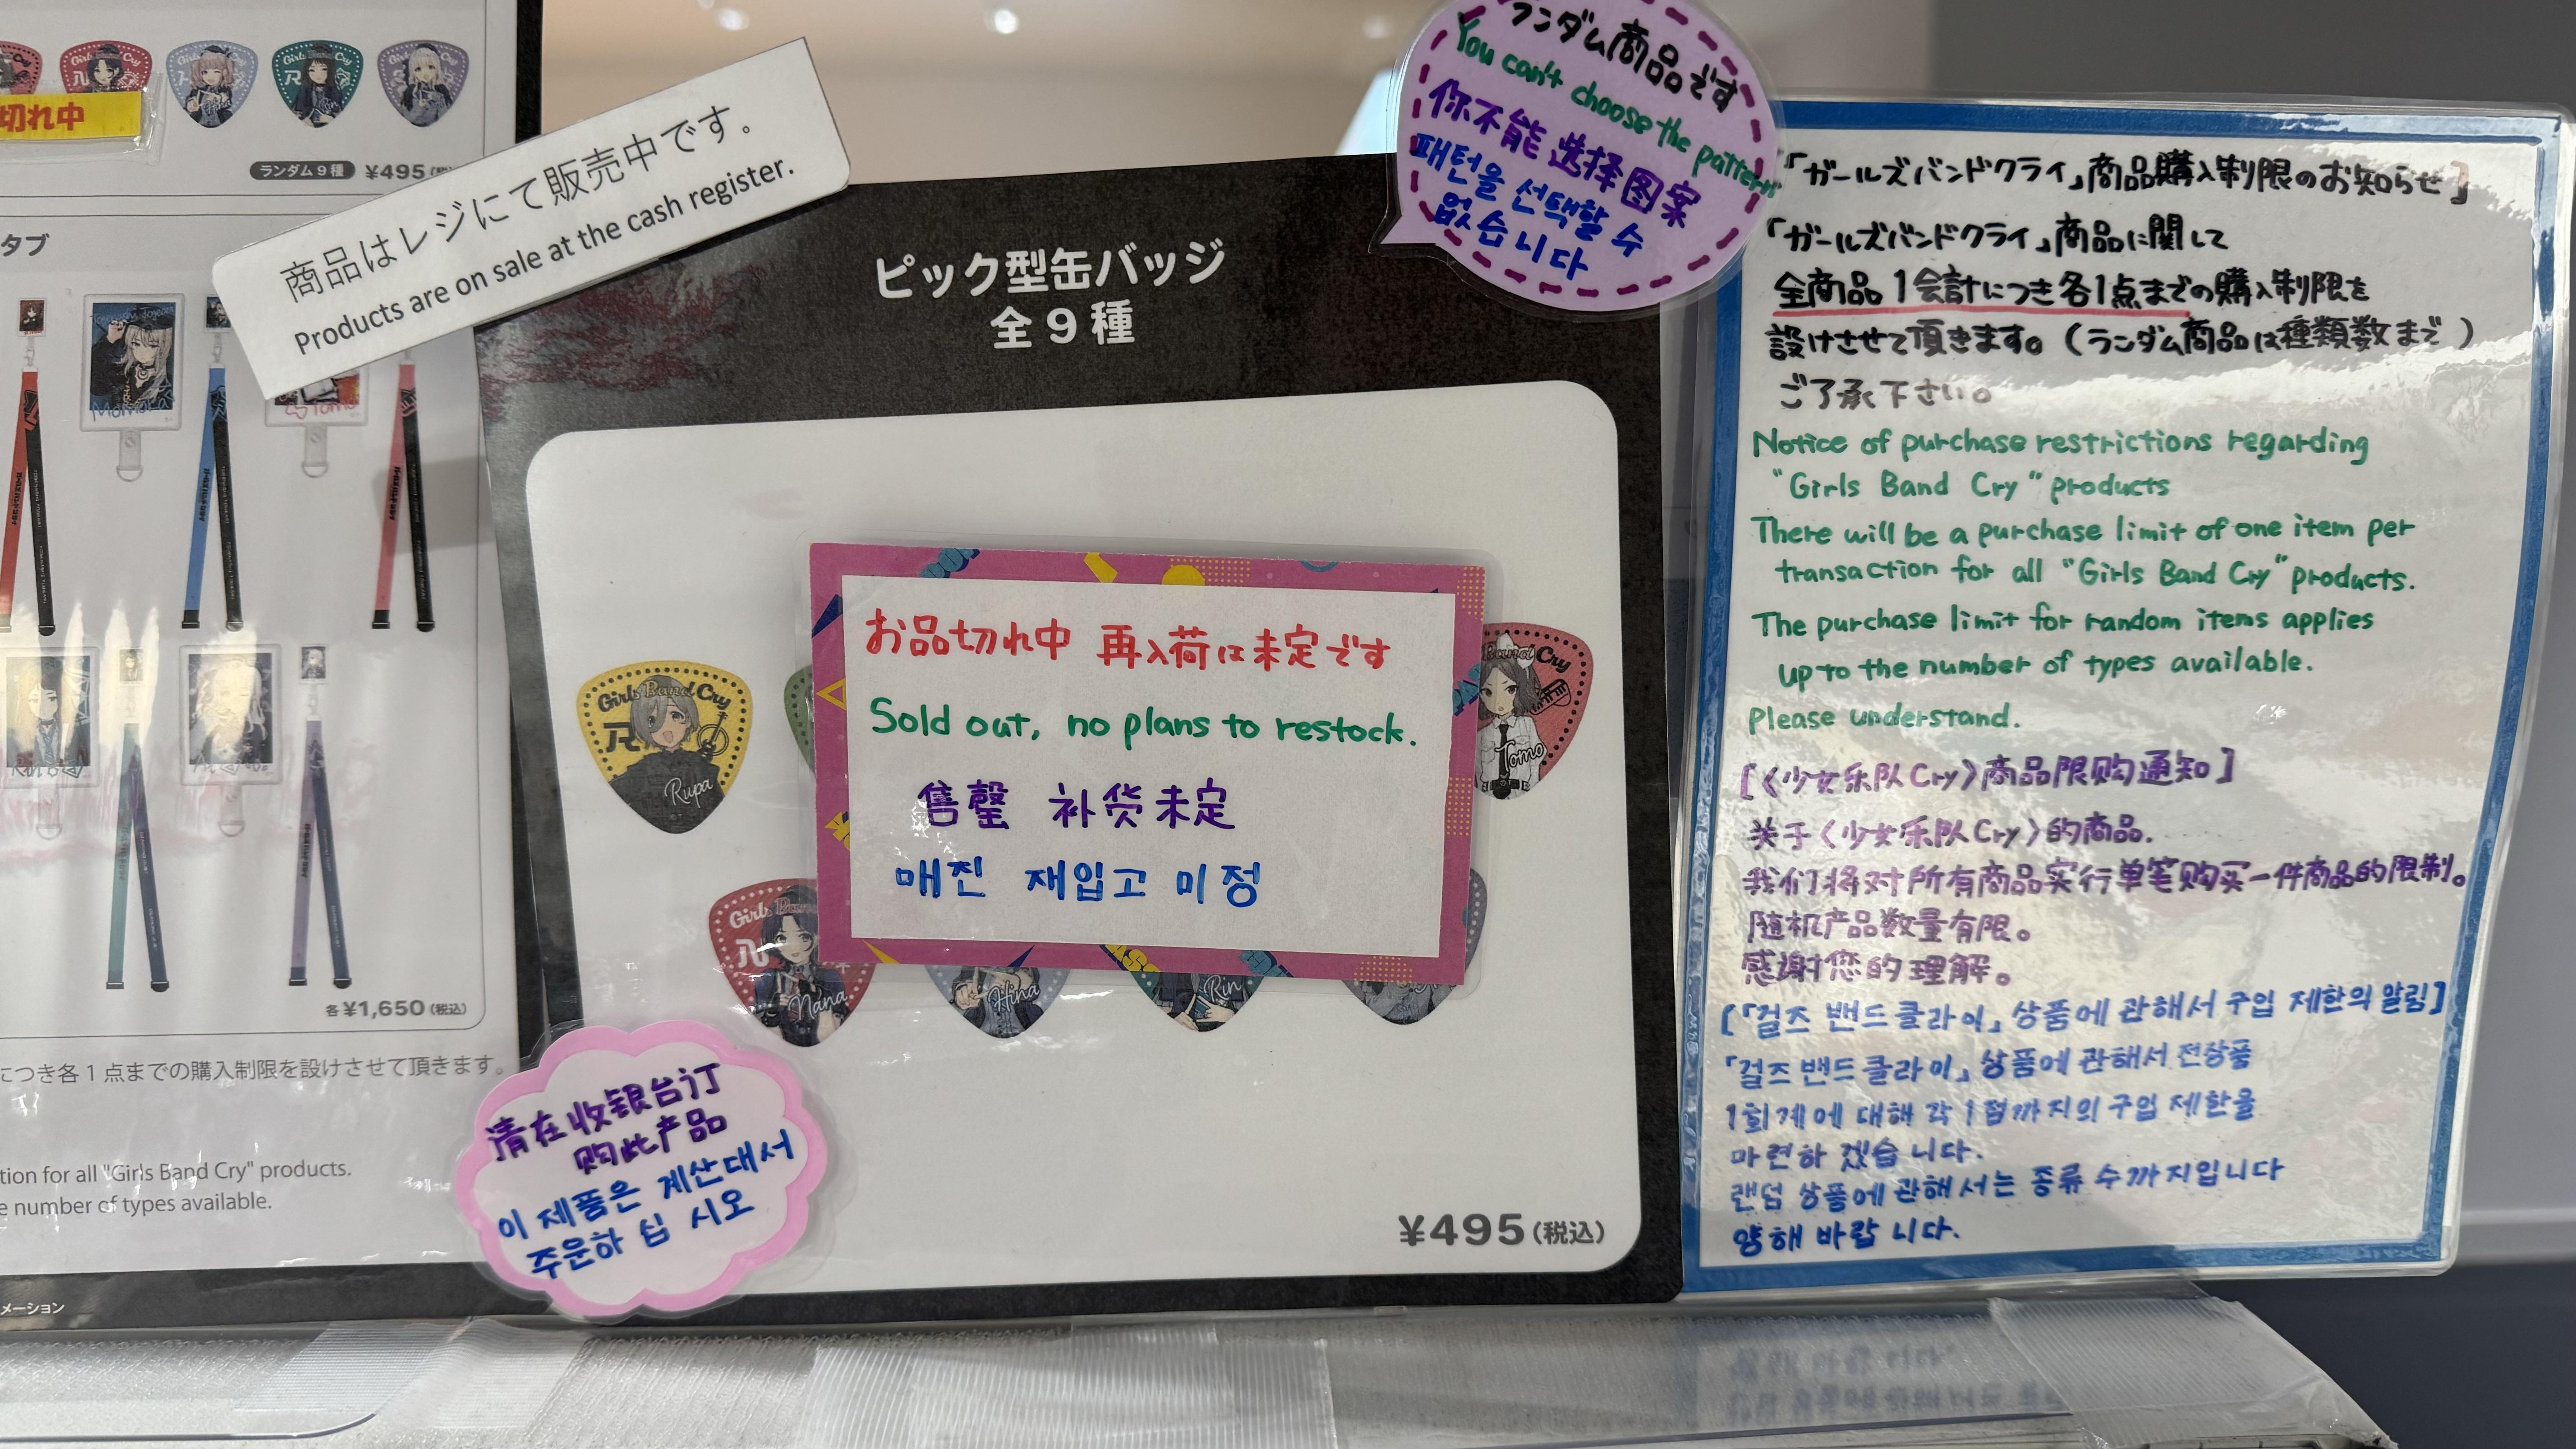 切れ中
ランダム9種 ¥495
タブ
商品はレジにて販売中です。
Products are on sale at the cash register.
各¥1,650(税込)
につき各1点までの購入制限を設けさせて頂きます。
tion for all "Girls Band Cry" products.
e number of types available.
メーション
ピック型缶バッジ
全9種
ランダム商品です
You can't choose the pattern
你不能选择图案
패턴을 선택할 수
없습니다
Girls Band Cry
Rupa
Band Cry
Tomo
お品切れ中 再入荷は未定です
Sold out, no plans to restock.
售罄 补货未定
매진 재입고 미정
Nana
Hina
Rin
¥495(税込)
请在收银台订
购此产品
이 제품은 계산대서
주운하 십 시오
「ガールズバンドクライ」商品購入制限のお知らせ】
「ガールズバンドクライ」商品に関して
全商品1会計につき各1点までの購入制限を
設けさせて頂きます。(ランダム商品は種類数まで)
ご了承下さい。
Notice of purchase restrictions regarding
"Girls Band Cry" products
There will be a purchase limit of one item per
transaction for all "Girls Band Cry" products.
The purchase limit for random items applies
up to the number of types available.
Please understand.
[〈少女乐队Cry〉商品限购通知]
关于〈少女乐队Cry〉的商品.
我们将对所有商品实行单笔购买一件商品的限制。
随机产品数量有限。
感谢您的理解。
[「걸즈 밴드 클라이」 상품에 관해서 구입 제한의 알림]
「걸즈 밴드 클라이」 상품에 관해서 전상품
1회계에 대해 각 1점까지의 구입 제한을
마련하 겠습 니다.
랜덤 상품에 관해서는 종류 수까지입니다
양해 바랍 니다.